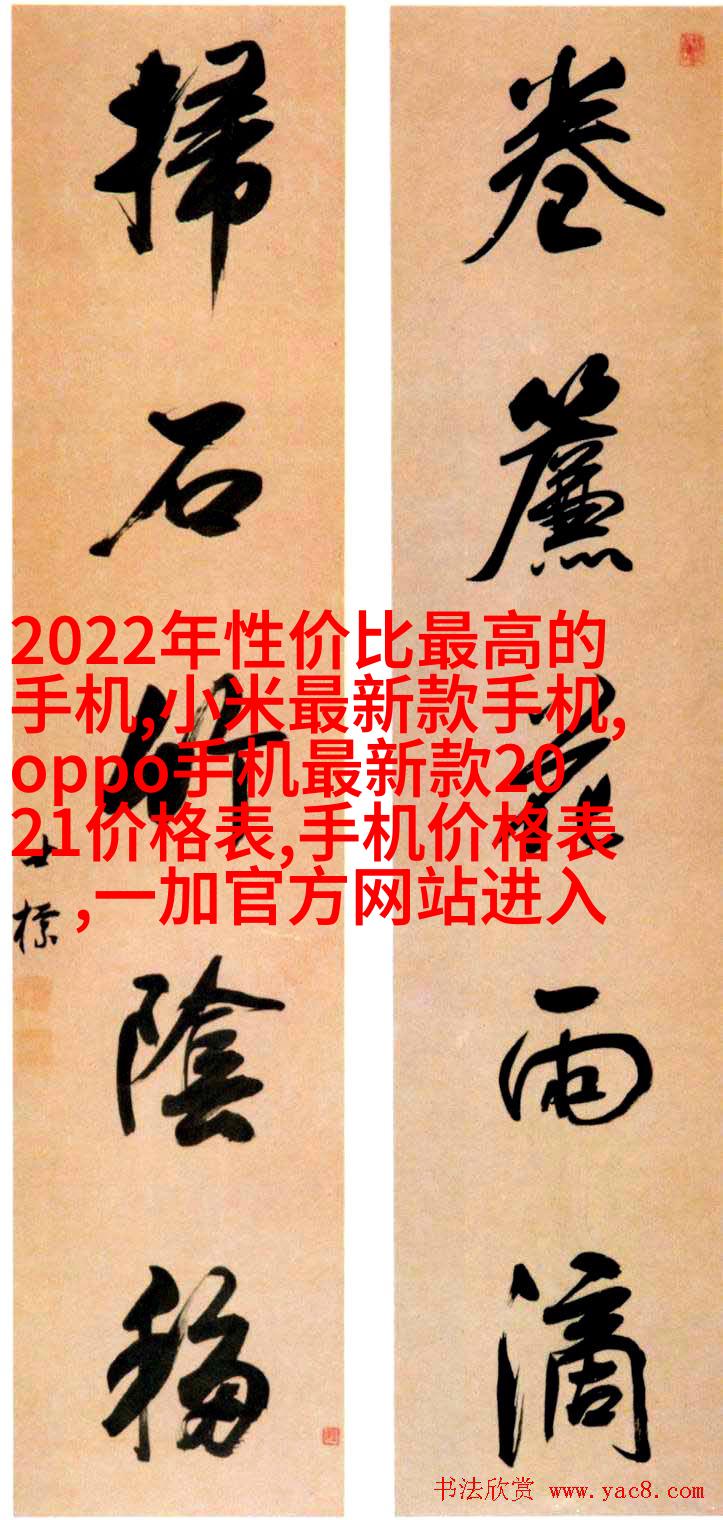 卷簾花雨滴
掃石竹陰移
士標
2022年性价比最高的
手机,小米最新款手机,
oppo手机最新款20
21价格表,手机价格表
,一加官方网站进入
书法欣赏 www.yac8.com